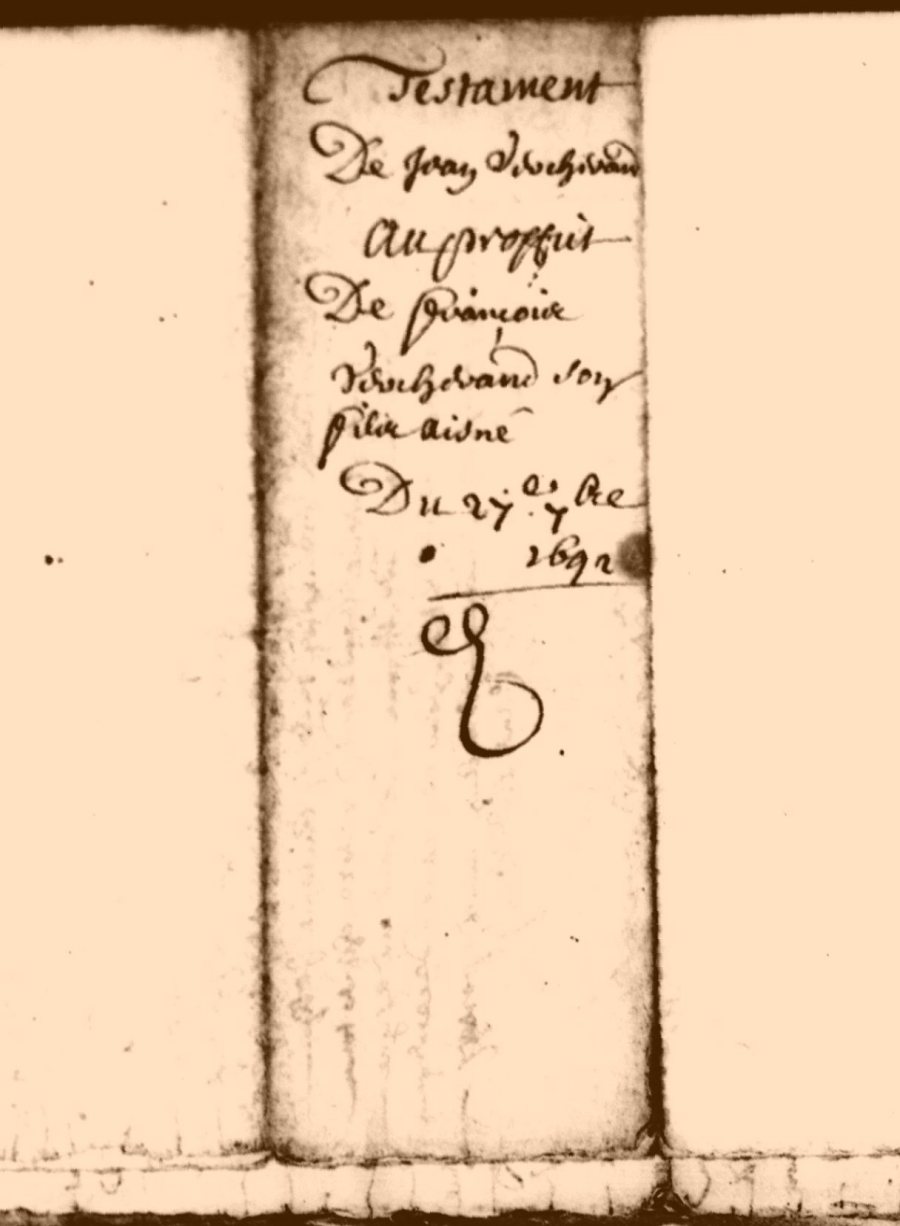 Testament
De Jean
Au proffit
De françois
son
filz aisné
Du 27e 7bre
1692